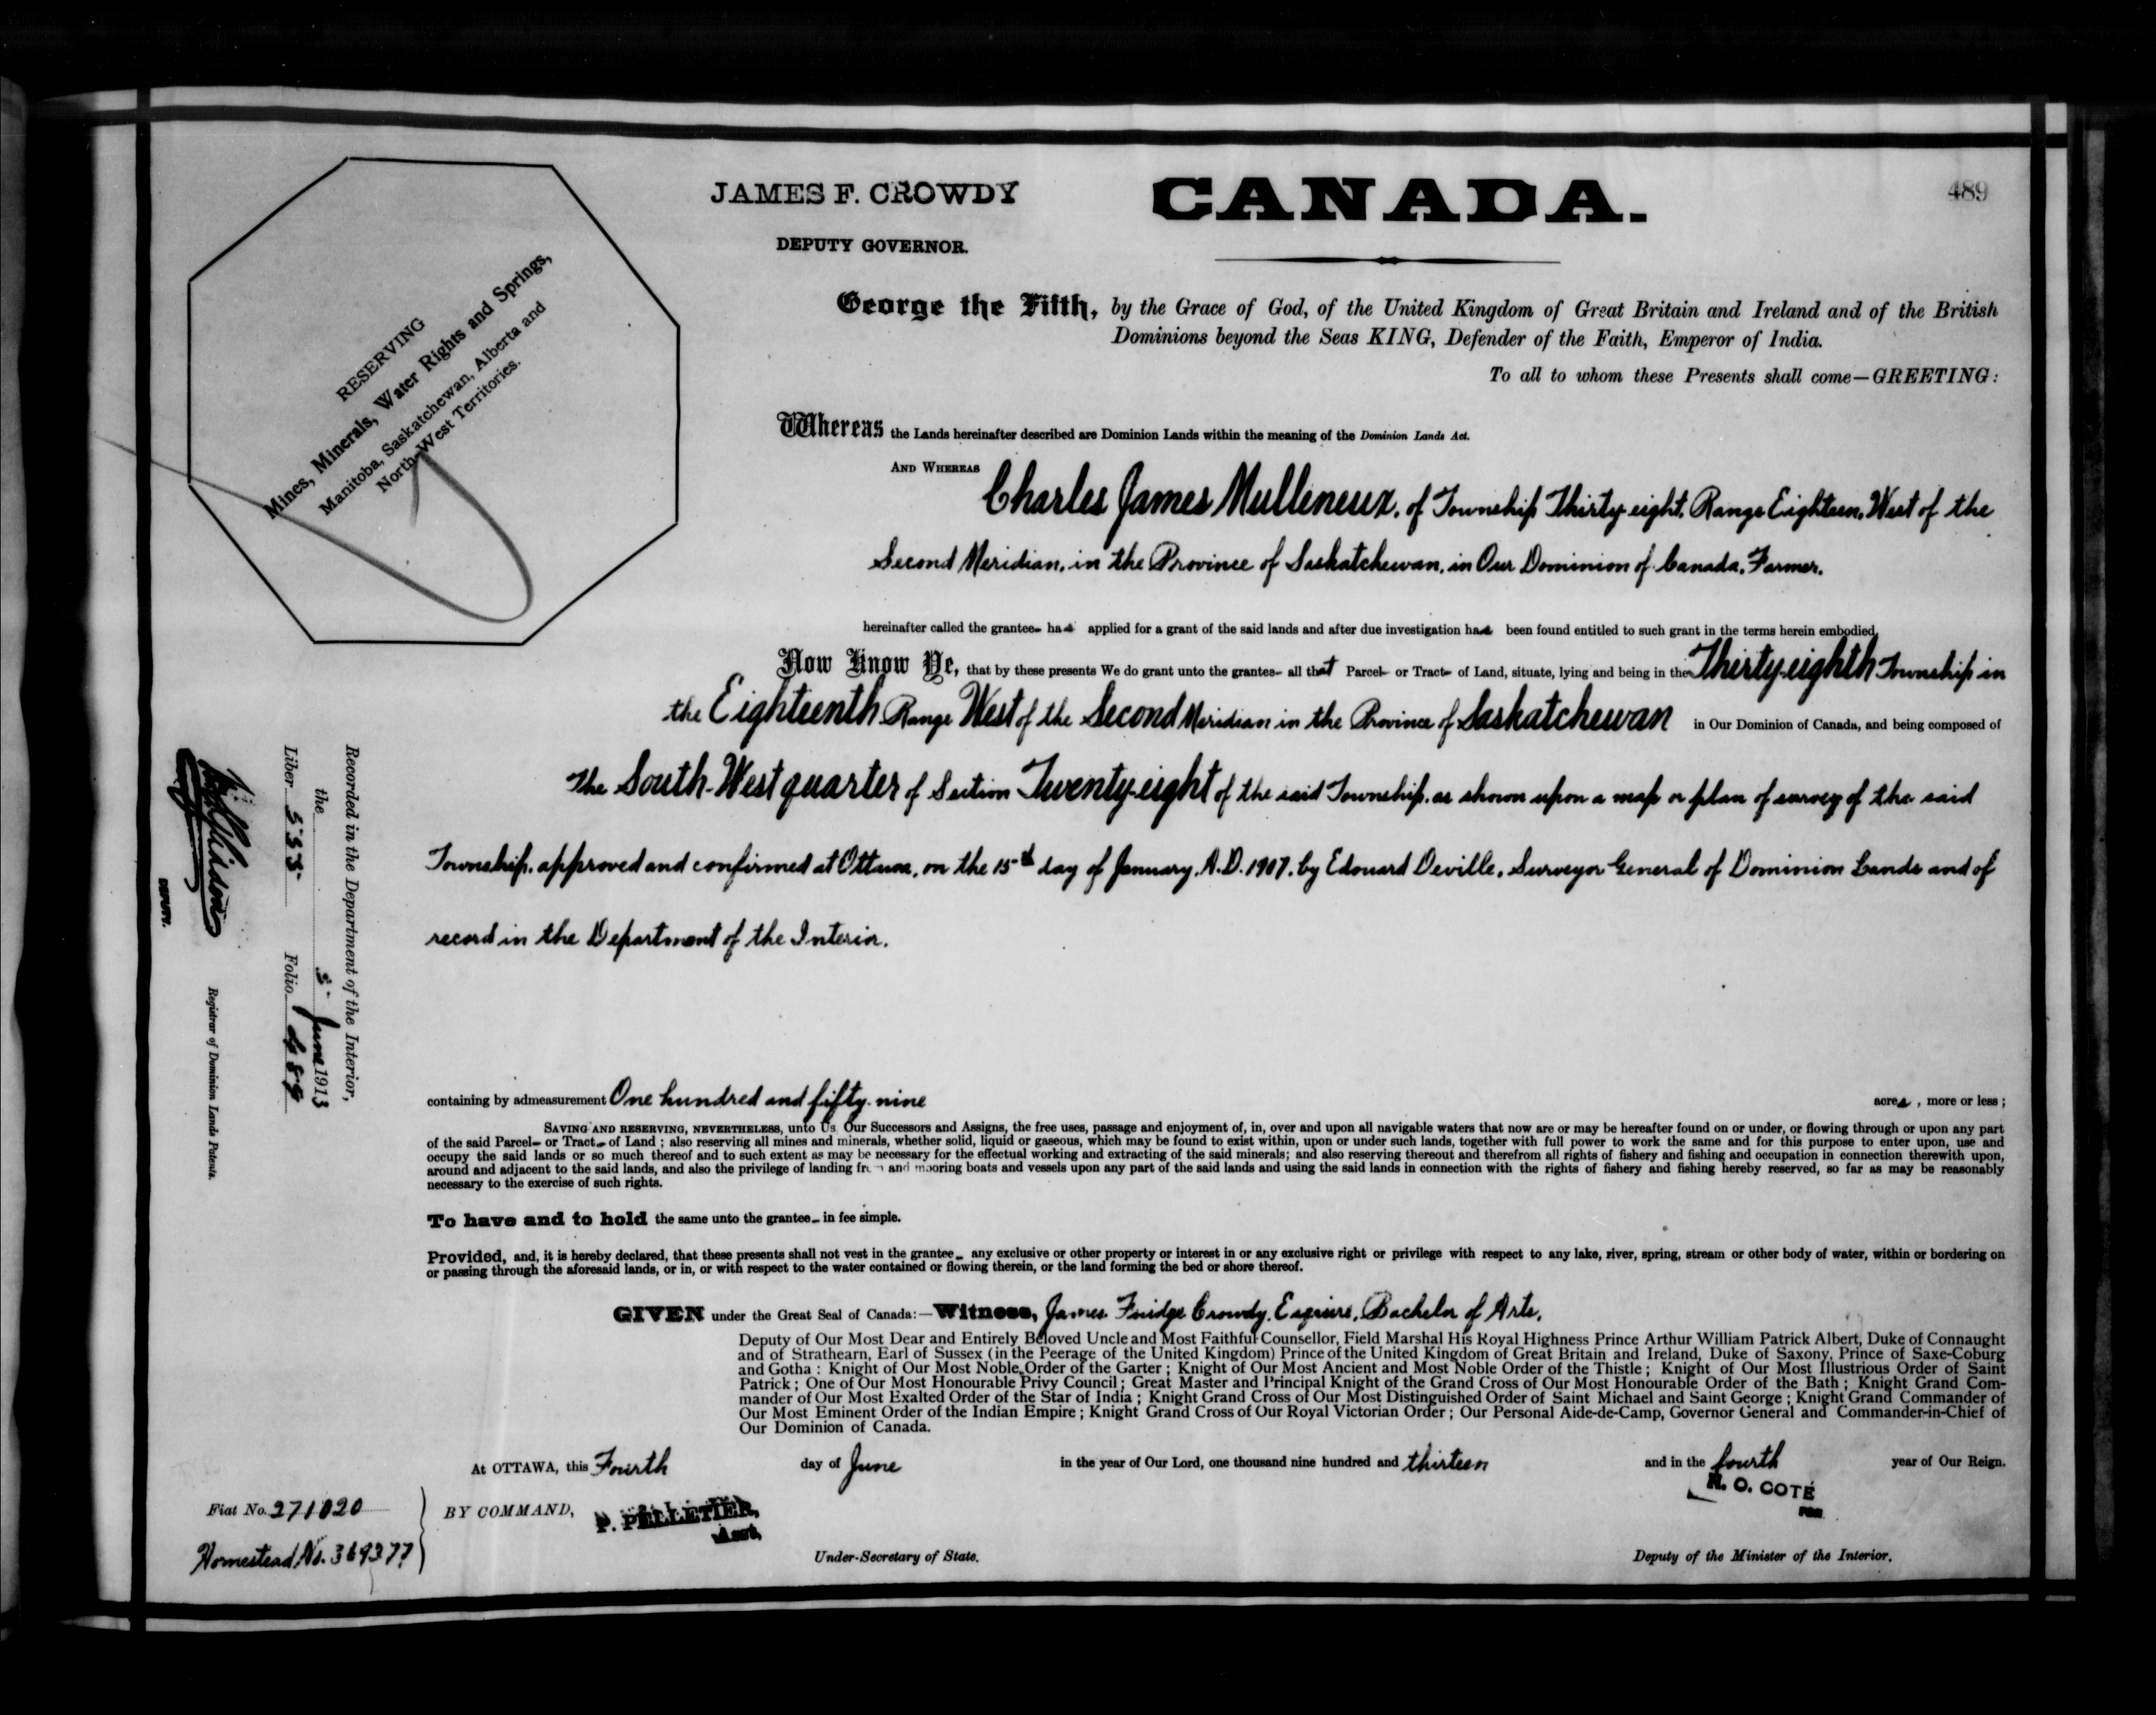 JAMES F. CROWDY
DEPUTY GOVERNOR.
CANADA.
489
RESERVING
Mines, Minerals, Water Rights and Springs,
Manitoba, Saskatchewan, Alberta and
North-West Territories.
George the Fifth, by the Grace of God, of the United Kingdom of Great Britain and Ireland and of the British
Dominions beyond the Seas KING, Defender of the Faith, Emperor of India.
To all to whom these Presents shall come—GREETING:
Whereas the Lands hereinafter described are Dominion Lands within the meaning of the Dominion Lands Act.
AND WHEREAS Charles James Mulleneux, of Township Thirty-eight, Range Eighteen, West of the
Second Meridian, in the Province of Saskatchewan, in Our Dominion of Canada, Farmer,
hereinafter called the grantee- has applied for a grant of the said lands and after due investigation has been found entitled to such grant in the terms herein embodied,
Now Know Ye, that by these presents We do grant unto the grantee- all that Parcel- or Tract- of Land, situate, lying and being in the Thirty-eighth Township in
the Eighteenth Range West of the Second Meridian in the Province of Saskatchewan in Our Dominion of Canada, and being composed of
The South-West quarter of Section Twenty-eight of the said Township, as shown upon a map or plan of survey of the said
Township, approved and confirmed at Ottawa, on the 15th day of January, A.D. 1907, by Edouard Deville, Surveyor General of Dominion Lands and of
record in the Department of the Interior.
containing by admeasurement One hundred and fifty-nine acres, more or less;
SAVING AND RESERVING, NEVERTHELESS, unto Us Our Successors and Assigns, the free uses, passage and enjoyment of, in, over and upon all navigable waters that now are or may be hereafter found on or under, or flowing through or upon any part
of the said Parcel- or Tract- of Land; also reserving all mines and minerals, whether solid, liquid or gaseous, which may be found to exist within, upon or under such lands, together with full power to work the same and for this purpose to enter upon, use and
occupy the said lands or so much thereof and to such extent as may be necessary for the effectual working and extracting of the said minerals; and also reserving thereout and therefrom all rights of fishery and fishing and occupation in connection therewith upon,
around and adjacent to the said lands, and also the privilege of landing from and mooring boats and vessels upon any part of the said lands and using the said lands in connection with the rights of fishery and fishing hereby reserved, so far as may be reasonably
necessary to the exercise of such rights.
To have and to hold the same unto the grantee- in fee simple.
Provided, and, it is hereby declared, that these presents shall not vest in the grantee- any exclusive or other property or interest in or any exclusive right or privilege with respect to any lake, river, spring, stream or other body of water, within or bordering on
or passing through the aforesaid lands, or in, or with respect to the water contained or flowing therein, or the land forming the bed or shore thereof.
GIVEN under the Great Seal of Canada:—Witness, James Fuidge Crowdy, Esquire, Bachelor of Arts,
Deputy of Our Most Dear and Entirely Beloved Uncle and Most Faithful Counsellor, Field Marshal His Royal Highness Prince Arthur William Patrick Albert, Duke of Connaught
and of Strathearn, Earl of Sussex (in the Peerage of the United Kingdom) Prince of the United Kingdom of Great Britain and Ireland, Duke of Saxony, Prince of Saxe-Coburg
and Gotha: Knight of Our Most Noble Order of the Garter; Knight of Our Most Ancient and Most Noble Order of the Thistle; Knight of Our Most Illustrious Order of Saint
Patrick; One of Our Most Honourable Privy Council; Great Master and Principal Knight of the Grand Cross of Our Most Honourable Order of the Bath; Knight Grand Com-
mander of Our Most Exalted Order of the Star of India; Knight Grand Cross of Our Most Distinguished Order of Saint Michael and Saint George; Knight Grand Commander of
Our Most Eminent Order of the Indian Empire; Knight Grand Cross of Our Royal Victorian Order; Our Personal Aide-de-Camp, Governor General and Commander-in-Chief of
Our Dominion of Canada.
At OTTAWA, this Fourth day of June in the year of Our Lord, one thousand nine hundred and thirteen and in the fourth year of Our Reign.
BY COMMAND, P. PELLETIER,
Act.
Under-Secretary of State.
N. O. COTE
FOR
Deputy of the Minister of the Interior.
Fiat No. 271020
Homestead No. 369377
Recorded in the Department of the Interior,
the 5 June 1913
Liber 535 Folio 489
DEPUTY.
Registrar of Dominion Lands Patents.